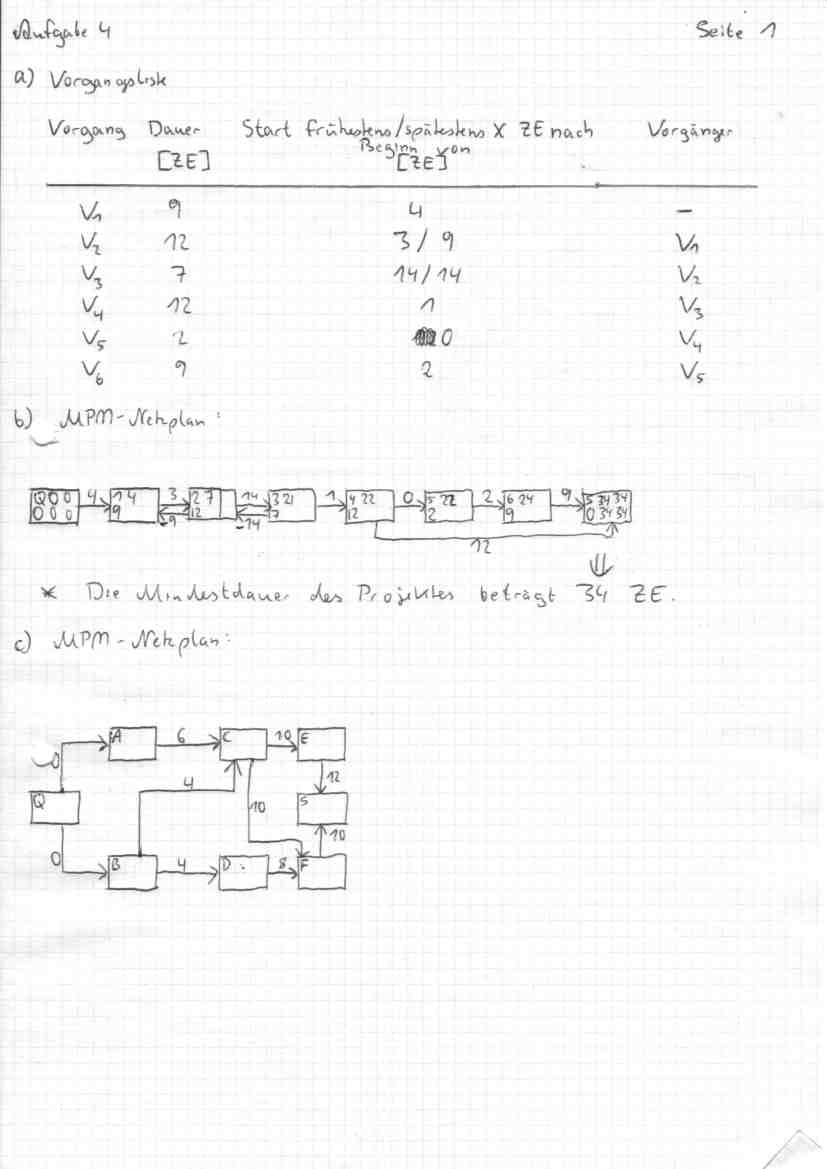 Aufgabe 4 Seite 1
a) Vorgangsliste
Vorgang Dauer Start frühestens/spätestens X ZE nach Vorgänger
Beginn von
[ZE] [ZE]
V1 9 4 –
V2 12 3/9 V1
V3 7 14/14 V2
V4 12 1 V3
V5 2 0 V4
V6 9 2 V5
b) MPM-Netzplan:
Q 0 0 4 1 4 3 2 7 14 3 21 1 4 22 0 5 22 2 6 24 9 S 34 34
0 0 0 9 -9 12 -14 7 12 2 9 0 34 34
12
⇓
* Die Mindestdauer des Projektes beträgt 34 ZE.
c) MPM-Netzplan:
A 6 C 10 E
0 12
4
Q 10 S
10
0 B 4 D 8 F